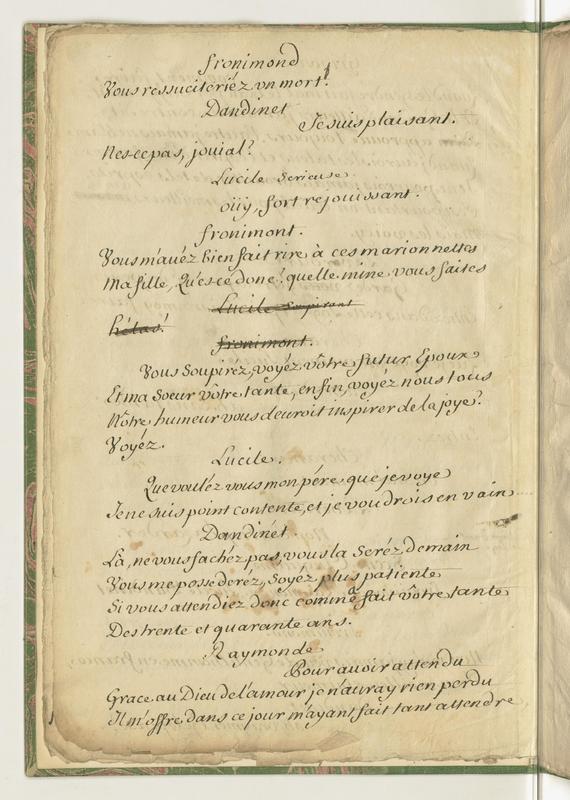 fronimond
Vous ressuciteriéz un mort!
Dandinet
Je suis plaisant.
Nes-ce pas, jouial?
Lucile Serieuse
oüy, fort rejouissant.
fronimont.
Vous m'auéz bien fait rire à ces marionnettes
Ma fille, Qu'es-cé donc? quelle mine vous faites
Lucile Soupirant
hélas!
fronimont.
Vous Soupiréz, voyéz vôtre futur Epoux
Et ma Soeur vôtre tante, enfin, voyéz nous tous
Nôtre humeur vous deuroit inspirer de la joye?
Voyéz.
Lucile.
Que vouléz vous mon pére que je voye
Je ne suis point contente, et je voudrois en vain
Dandinét
Là, ne vous fachéz pas, vous la Seréz demain
Vous me possederéz, Soyéz plus patiente
Si vous attendiez donc comme a fait votre tante
Des trente et quarante ans.
Raymonde
Pour auoir attendu
Grace au Dieu de l'amour je n'auray rien perdu
Il m'offre dans ce jour m'ayant fait tant attendre